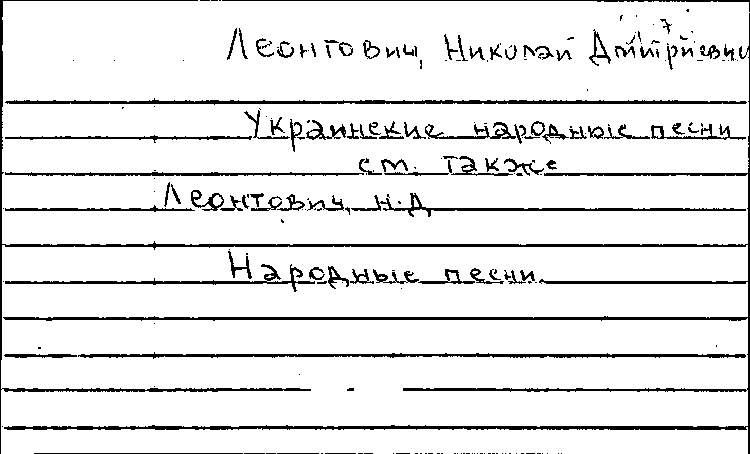 Леонтович, Николай Дмитриевич
Украинские народные песни
см. также
Леонтович, Н.Д.
Народные песни.